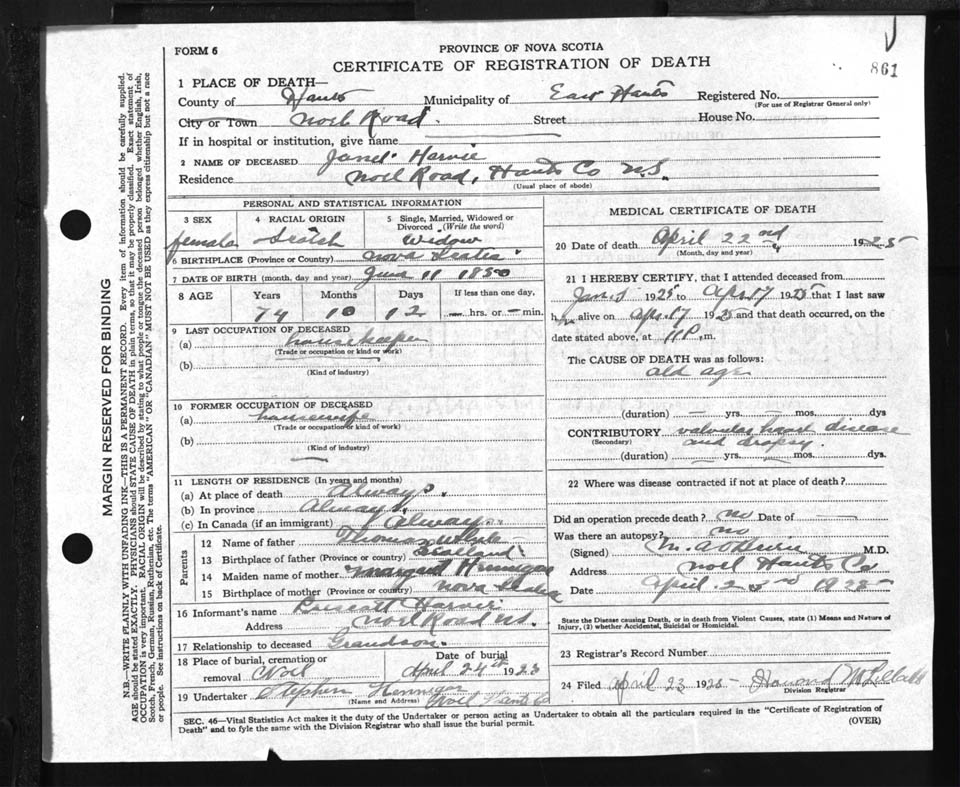 861
FORM 6
PROVINCE OF NOVA SCOTIA
CERTIFICATE OF REGISTRATION OF DEATH
MARGIN RESERVED FOR BINDING
N.B.—WRITE PLAINLY WITH UNFADING INK—THIS IS A PERMANENT RECORD. Every item of information should be carefully supplied.
AGE should be stated EXACTLY. PHYSICIANS should STATE CAUSE OF DEATH in plain terms, so that it may be properly classified. Exact statement of
OCCUPATION is very important. RACIAL ORIGIN will be described by stating to what people or tongue the deceased person belonged whether English, Irish,
Scotch, French, German, Russian, Ruthenian, etc. The terms "AMERICAN" OR "CANADIAN" MUST NOT BE USED as they express citizenship but not a race
or people. See instructions on back of Certificate.
1 PLACE OF DEATH—
County of Hants Municipality of East Hants Registered No.
(For use of Registrar General only)
City or Town Noel Road. Street House No.
If in hospital or institution, give name
2 NAME OF DECEASED Janet Harvie
Residence Noel Road, Hants Co N.S.
(Usual place of abode)
PERSONAL AND STATISTICAL INFORMATION
3 SEX 4 RACIAL ORIGIN 5 Single, Married, Widowed or
Divorced (Write the word)
female Scotch Widow
6 BIRTHPLACE (Province or Country) Nova Scotia
7 DATE OF BIRTH (month, day and year) June 11 1850
8 AGE Years Months Days If less than one day,
74 10 12 hrs. or — min.
9 LAST OCCUPATION OF DECEASED
(a) housekeeper
(Trade or occupation or kind or work)
(b)
(Kind of industry)
10 FORMER OCCUPATION OF DECEASED
(a) housewife
(Trade or occupation or kind of work)
(b)
(Kind of industry)
11 LENGTH OF RESIDENCE (In years and months)
(a) At place of death Always.
(b) In province Always.
(c) In Canada (if an immigrant) Always
Parents
12 Name of father Thomas
13 Birthplace of father (Province or country) Scotland
14 Maiden name of mother Margaret Hennigar
15 Birthplace of mother (Province or country) Nova Scotia
16 Informant's name Prescott Harvie
Address Noel Road N.S.
17 Relationship to deceased Grandson.
18 Place of burial, cremation or Date of burial
removal Noel April 24th 1923
19 Undertaker Stephen Hennigar
(Name and Address) Noel Hants Co
MEDICAL CERTIFICATE OF DEATH
20 Date of death April 22nd 1925
(Month, day and year)
21 I HEREBY CERTIFY, that I attended deceased from
Jan. 5 1925 to Apr. 17 1925 that I last saw
her alive on Apr. 17 1925 and that death occurred, on the
date stated above, at 11 P. m.
The CAUSE OF DEATH was as follows:
old age
(duration) — yrs. — mos. dys
CONTRIBUTORY valvular heart disease
(Secondary) and dropsy.
(duration) — yrs. — mos. dys.
22 Where was disease contracted if not at place of death?
Did an operation precede death? no Date of
Was there an autopsy? no
(Signed) M.D.
Address Noel Hants Co
Date April 23rd 1925
State the Disease causing Death, or in death from Violent Causes, state (1) Means and Nature of
Injury, (2) whether Accidental, Suicidal or Homicidal.
23 Registrar's Record Number
24 Filed April 23 1925
Division Registrar
SEC. 46—Vital Statistics Act makes it the duty of the Undertaker or person acting as Undertaker to obtain all the particulars required in the "Certificate of Registration of
Death" and to fyle the same with the Division Registrar who shall issue the burial permit.
(OVER)